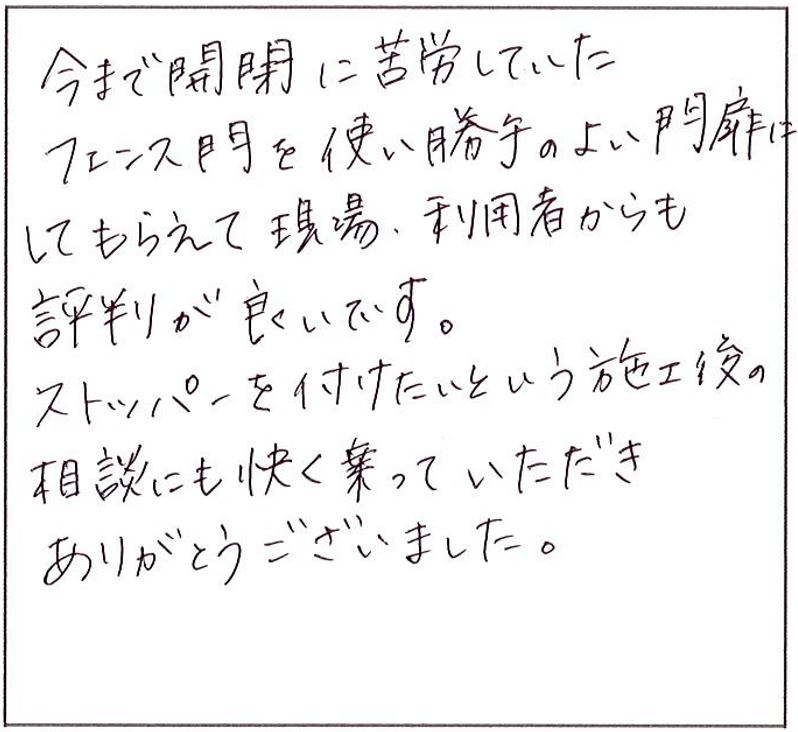 今まで開閉に苦労していた
フェンス門を使い勝手のよい門扉に
してもらえて現場、利用者からも
評判が良いです。
ストッパーを付けたいという施工後の
相談にも快く乗っていただき
ありがとうございました。